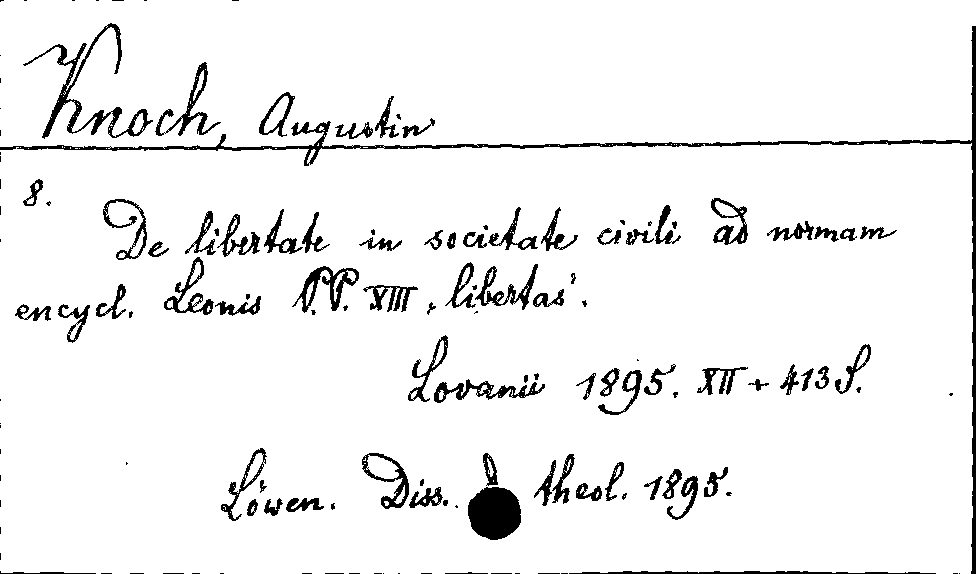 Knoch, Augustin
8.
De libertate in societate civili ad normam
encycl. Leonis P.P. XIII ‚libertas‘.
Lovanii 1895. XII + 413 S.
Löwen. Diss. theol. 1895.